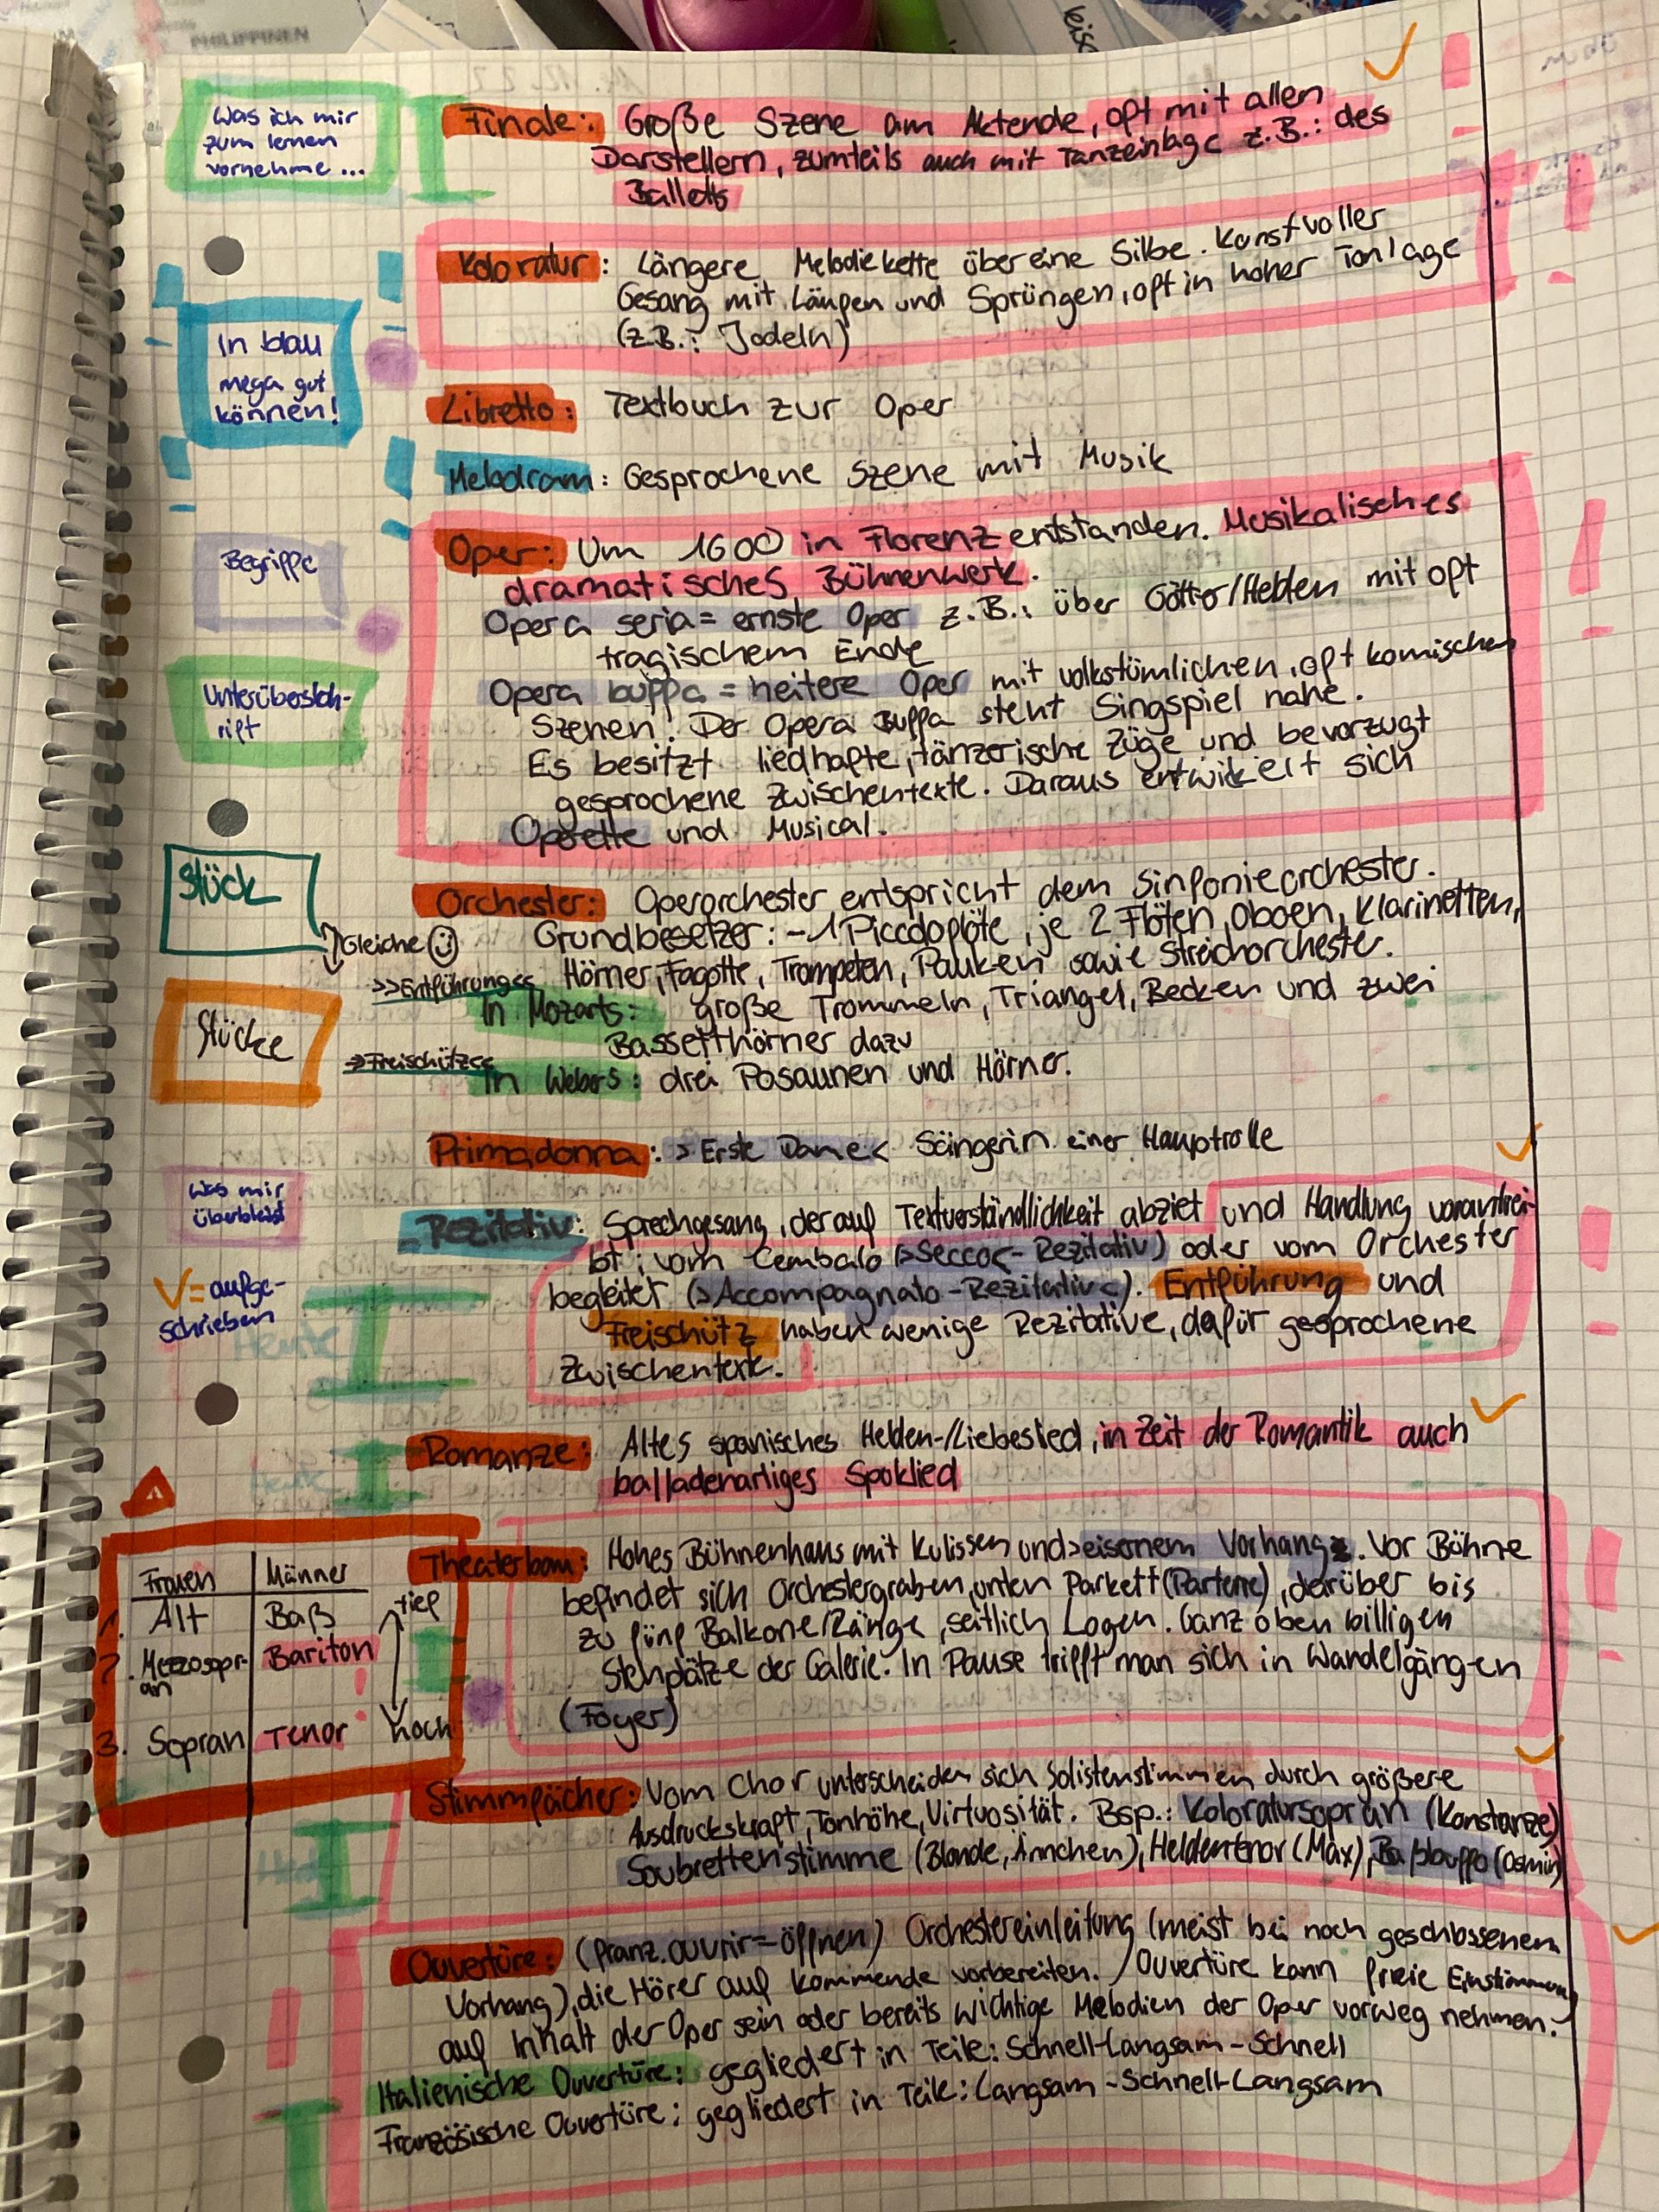 PHILIPPINEN
Was ich mir
zum lernen
vornehme...
Finale: Große Szene am Aktende, oft mit allen
Darstellern, zumteils auch mit Tanzeinlage z.B.: des
Balletts
Koloratur: Längere Melodiekette über eine Silbe. Kunstvoller
Gesang mit Läufen und Sprüngen, oft in hoher Tonlage
(z.B.: Jodeln)
In blau
mega gut
können!
Libretto: Textbuch zur Oper
Melodram: Gesprochene Szene mit Musik
Begriffe
Oper: Um 1600 in Florenz entstanden. Musikalisches
dramatisches Bühnenwerk.
Opera seria = ernste Oper z.B.: über Götter/Helden mit oft
tragischem Ende
Opera buffa = heitere Oper mit volkstümlichen, oft komischen
Szenen! Der Opera Buffa steht Singspiel nahe.
Es besitzt liedhafte, tänzerische Züge und bevorzugt
gesprochene Zwischentexte. Daraus entwickelt sich
Operette und Musical.
Unterübersch-
rift
Stück
Gleiche
Stücke
Orchester: Operorchester entspricht dem Sinfonieorchester.
Grundbesetzer: - 1 Piccoloflöte, je 2 Flöten, Oboen, Klarinetten,
Hörner, Fagotte, Trompeten, Pauken sowie Streichorchester.
>>Entführung<<
In Mozarts: große Trommeln, Triangel, Becken und zwei
Bassetthörner dazu
>>Freischütz<<
In Webers: drei Posaunen und Hörner.
Primadonna: >Erste Dame< Sängerin einer Hauptrolle
Was mir
überbleibt
Rezitativ: Sprechgesang, der auf Textverständlichkeit abziet und Handlung vorantrei-
bt; vom Cembalo (>Secco<-Rezitativ) oder vom Orchester
begleitet (>Accompagnato-Rezitativ<). Entführung und
Freischütz haben wenige Rezitative, dafür gesprochene
Zwischentexte.
√= aufge-
schrieben
Heute
Romanze: Altes spanisches Helden-/Liebeslied, in Zeit der Romantik auch
balladenartiges Spuklied
Heute
Frauen Männer
1. Alt Baß tief
2. Mezzosopr- Bariton
an
3. Sopran Tenor hoch
Theaterbau: Hohes Bühnenhaus mit Kulissen und >eisernem Vorhang<. Vor Bühne
befindet sich Orchestergraben, unten Parkett (Parterre), darüber bis
zu fünf Balkone/Ränge, seitlich Logen. Ganz oben billigen
Stehplätze der Galerie. In Pause trifft man sich in Wandelgängen
(Foyer)
Stimmfächer: Vom Chor unterscheiden sich Solistenstimmen durch größere
Ausdruckskraft, Tonhöhe, Virtuosität. Bsp.: Koloratursopran (Konstanze)
Soubrettenstimme (Blonde, Ännchen), Heldentenor (Max), Baßbuffo (Osmin)
Ouvertüre: (franz. ouvrir = öffnen) Orchestereinleitung (meist bei noch geschlossenem
Vorhang), die Hörer auf kommende vorbereiten. Ouvertüre kann freie Einstimmung
auf Inhalt der Oper sein oder bereits wichtige Melodien der Oper vorweg nehmen.
Italienische Ouvertüre: gegliedert in Teile: Schnell-Langsam-Schnell
Französische Ouvertüre: gegliedert in Teile: Langsam-Schnell-Langsam